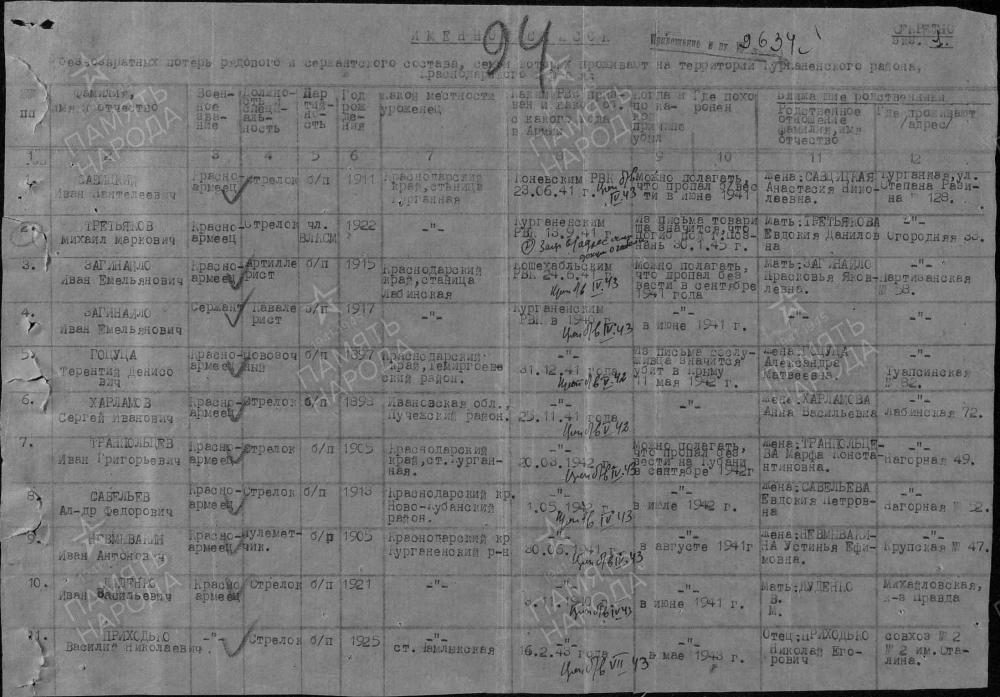 94
ИМЕННОЙ СПИСОК
Приложение к вх № 2634с
СЕКРЕТНО
экз. 1.
безвозвратных потерь рядового и сержантского состава, семьи которых проживают на территории Курганенского района,
Краснодарского края:
№№ пп
Фамилия, имя и отчество
Военное звание
Должность и специальность
Партийность
Год рождения
Какой местности уроженец
Каким РВК призван и с какого года в Армии
Когда и по какой причине убыл
Где похоронен
Ближайшие родственники
Родственное отношение фамилия, имя отчество
Где проживают /адрес/
1 2 3 4 5 6 7 9 10 11 12
1. САВИЦКИЙ Иван Пантелеевич
Красноармеец
Стрелок
б/п
1911
Краснодарский край, станица Курганная
23.06.41 г.
IV.43
Можно полагать, что пропал б/вести в июне 1941
Жена: САВИЦКАЯ Анастасия Николаевна.
Курганная, ул. Степана Разина № 128.
2. ТРЕТЬЯКОВ Михаил Маркович
Красноармеец
Стрелок
чл. ВЛКСМ
1922
-"-
Курганенским РВК 13.9.41 г.
Из письма товарища значится, что
30.1.43 г.
Мать: ТРЕТЬЯКОВА Евдокия Даниловна
-"-
Огородняя 33.
3. ЗАГИНАЙЛО Иван Емельянович
Красноармеец
Артиллерист
б/п
1915
Краснодарский край, станица Лабинская
Кошехабльским РВК 24.6.41 г.
IV.43
Можно полагать, что пропал без вести в сентябре 1941 года
Мать: ЗАГИНАЙЛО Прасковья Яковлевна.
-"-
Партизанская № 58.
4. ЗАГИНАЙЛО Иван Емельянович
Сержант
Кавалерист
б/п
1917
-"-
Курганенским РВК в 1940 г.
IV.43
-"-
в июне 1941 г.
-"-
-"-
5. ГОЦУЦА Терентий Денисович
Красноармеец
Повозочный
б/п
1897
Краснодарский край, Темиргоевский район.
-"-
31.12.41 года
V.42
Из письма сослуживца значится убит в Крыму 11 мая 1942 г.
Жена: ГОЦУЦА Александра Матвеевна.
-"-
Туапсинская № 82.
6. ХАРЛАМОВ Сергей Иванович
Красноармеец
Стрелок
б/п
1898
Ивановская обл., Пучежский район.
-"-
25.11.41 года
V.42
-"-
Жена: ХАРЛАМОВА Анна Васильевна
-"-
Лабинская 72.
7. ТРАНПОЛЬЦЕВ Иван Григорьевич
Красноармеец
Стрелок
б/п
1905
Краснодарский край, ст. Курганная.
-"-
20.08.1942 г.
IV.43
Можно полагать, что пропал без вести на Кубани в сентябре 1942г
Жена: ТРАНПОЛЬЦЕВА Марфа Константиновна.
-"-
Нагорная 49.
8. САВЕЛЬЕВ Ал-др Федорович
Красноармеец
Стрелок
б/п
1918
Краснодарский кр. Ново-Кубанский район.
-"-
1.05.1942 г.
IV 43
-"-
в июле 1942 г.
Жена: САВЕЛЬЕВА Евдокия Петровна
-"-
Нагорная № 52.
9. НЕВМЫВАКИН Иван Антонович
Красноармеец
Пулеметчик.
б/п
1905
Краснодарский кр Курганенский р-н
-"-
30.06.1941 г.
IV.43
-"-
в августе 1941г
Жена: НЕВМЫВАКИНА Устинья Ефимовна.
-"-
Крупская № 47.
10. ДУДЕНКО Иван Васильевич
Красноармеец
Стрелок
б/п
1921
-"-
-"-
IV43
-"-
в июне 1941 г.
Мать: ДУДЕНКО В. М.
Михайловская, к-з Правда
11. ПРИХОДЬКО Василий Николаевич.
-"-
Стрелок
б/п
1925
-"-
ст. Чамлыкская
-"-
16.2.43 года
VII 43
-"-
в мае 1943 г.
Отец: ПРИХОДЬКО Николай Егорович
совхоз № 2
№ 2 им. Сталина.
ПАМЯТЬ НАРОДА